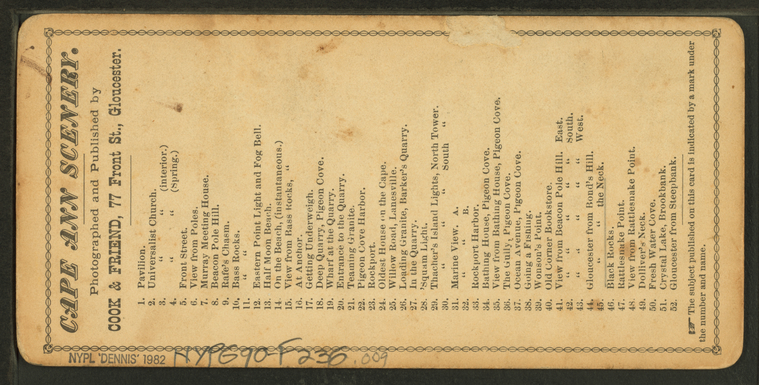 CAPE ANN SCENERY.
Photographed and Published by
COOK & FRIEND, 77 Front St., Gloucester.
1. Pavilion.
2. Universalist Church.
3. " " (Interior.)
4. " " (Spring.)
5. Front Street.
6. View from Poles.
7. Murray Meeting House.
8. Beacon Pole Hill.
9. Rafe's Chasm.
10. Bass Rocks.
11. " "
12. Eastern Point Light and Fog Bell.
13. Half Moon Beach.
14. On the Beach, (instantaneous.)
15. View from Bass Rocks, "
16. At Anchor.
17. Getting Underweigh.
18. Deep Quarry, Pigeon Cove.
19. Wharf at the Quarry.
20. Entrance to the Quarry.
21. Teaming Granite.
22. Pigeon Cove Harbor.
23. Rockport.
24. Oldest House on the Cape.
25. Willow Road, Lanesville.
26. Loading Granite, Barker's Quarry.
27. In the Quarry.
28. 'Squam Light.
29. Thatcher's Island Lights, North Tower.
30. " " " South "
31. Marine View. A.
32. " " B.
33. Rockport Harbor.
34. Bathing House, Pigeon Cove.
35. View from Bathing House, Pigeon Cove.
36. The Gully, Pigeon Cove.
37. Ocean Avenue, Pigeon Cove.
38. Going a Fishing.
39. Wonson's Point.
40. Old Corner Bookstore.
41. View from Beacon Pole Hill. East.
42. " " " " " South.
43. " " " " " West.
44. Gloucester from Bond's Hill.
45. " " the Neck.
46. Black Rocks.
47. Rattlesnake Point.
48. View from Rattlesnake Point.
49. Dolliver's Neck.
50. Fresh Water Cove.
51. Crystal Lake, Brookbank.
52. Gloucester from Steepbank.
☞ The subject published on this card is indicated by a mark under
the number and name.
NYPL 'DENNIS' 1982 NYPG90-F236 .009